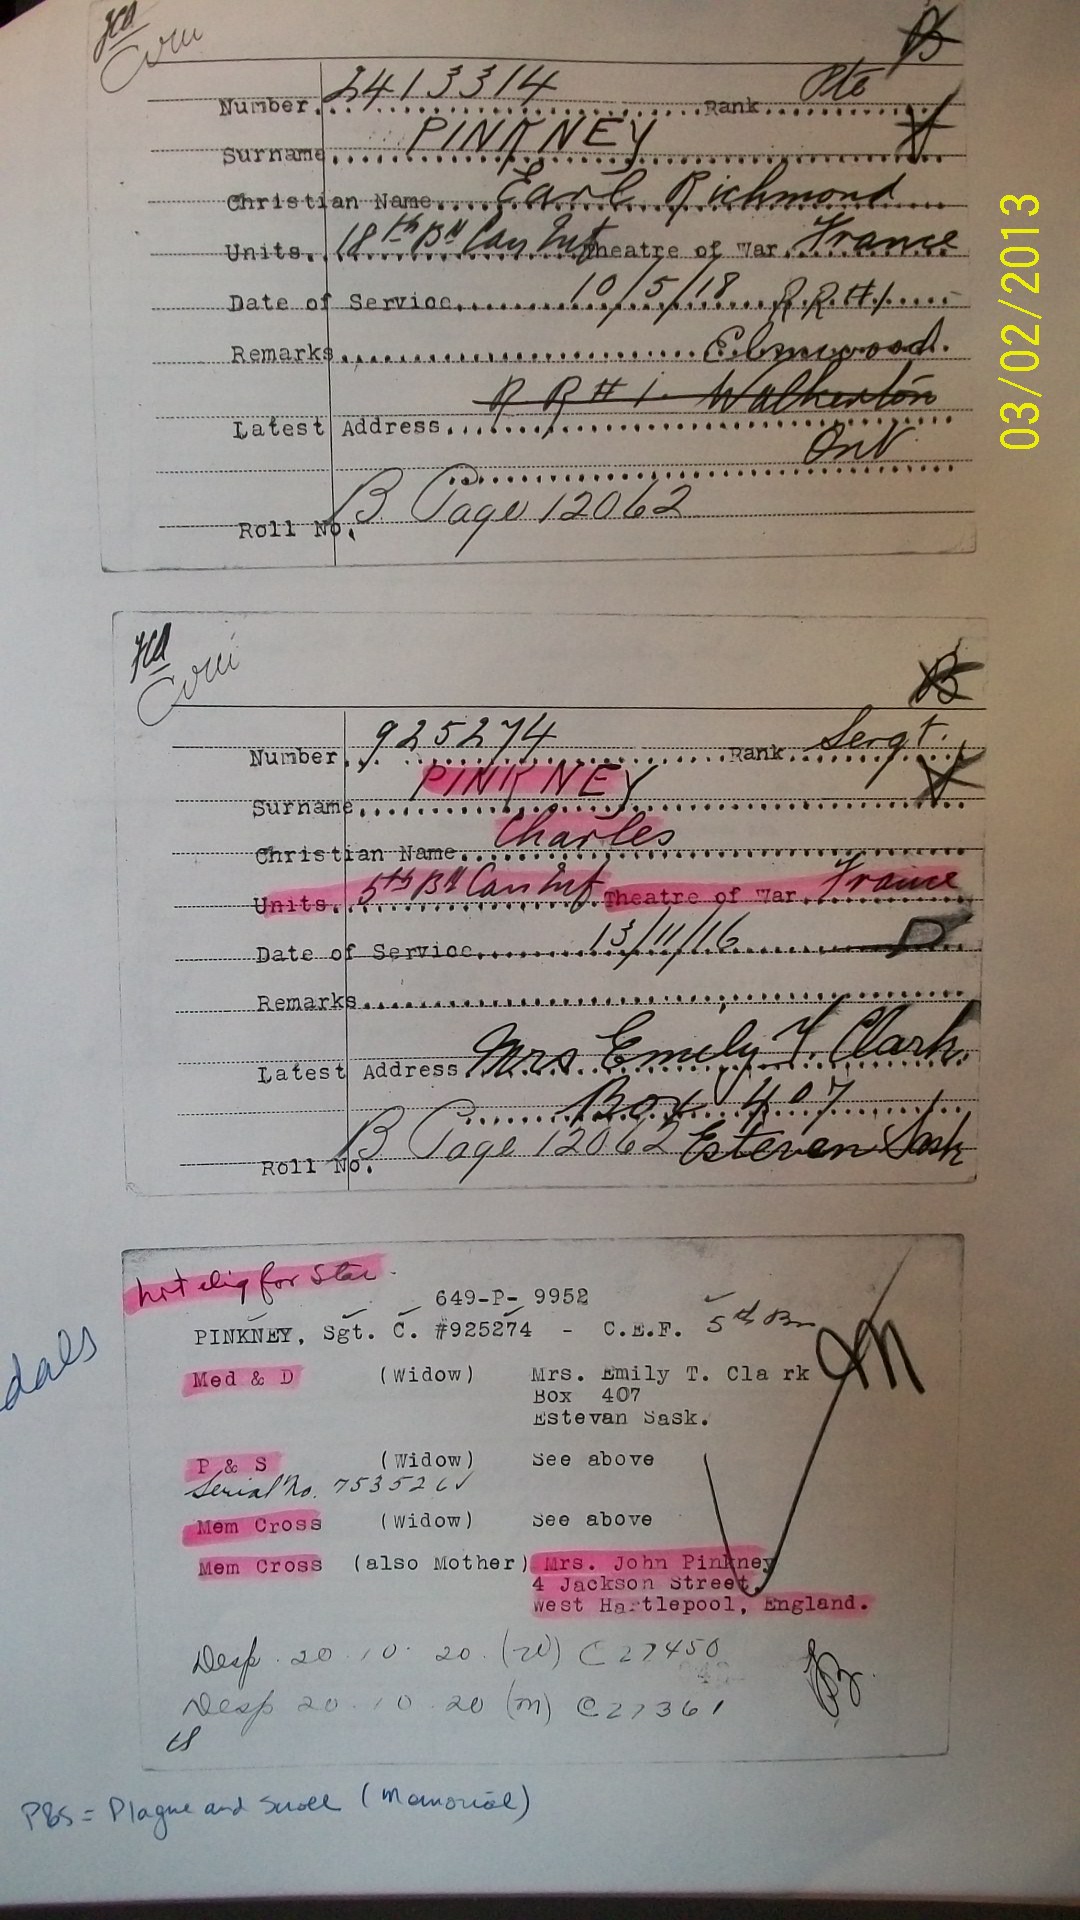 Number. 2413314 Rank Pte
Surname PINKNEY
Christian Name. Earl Richmond
Units. 18th Bn Can Inf Theatre of War. France
Date of Service. 10/5/18 R R #1
Remarks. Elmwood.
R R # 1. Walkerton
Latest Address. Ont
Roll No. B Page 12062
03/02/2013
Number. 925274 Rank. Sergt.
Surname PINKNEY
Christian Name. Charles
Units. 5th Bn Can Inf Theatre of War. France
Date of Service. 13/11/16 D
Remarks.
Latest Address Mrs Emily T. Clark.
Box 407
Roll No. B Page 12062 Esteven Sask
Not elig for Star.
649-P- 9952
PINKNEY, Sgt. C. #925274 - C.E.F. 5th Bn
Med & D (Widow) Mrs. Emily T. Cla rk
Box 407
Estevan Sask.
P & S (Widow) See above
Serial No. 753526
Mem Cross (Widow) See above
Mem Cross (also Mother) Mrs. John Pinkney
4 Jackson Street,
West Hartlepool, England.
Desp. 20. 10. 20. (W) C 27450
Desp 20 10. 20 (M) C 27361
dals
P&S = Plaque and Scroll (Memorial)